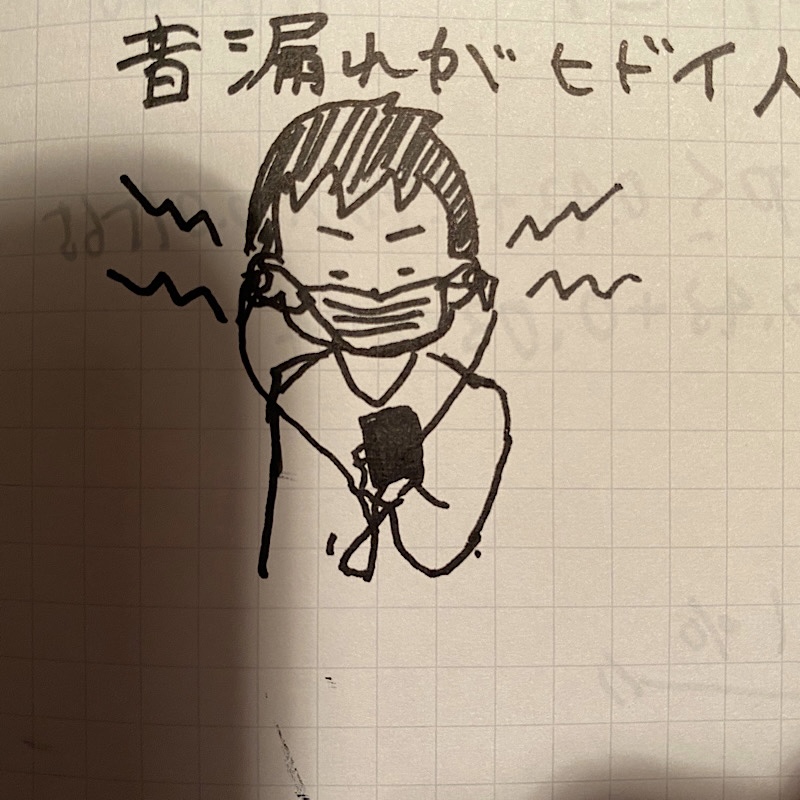 音漏れがヒドイ人